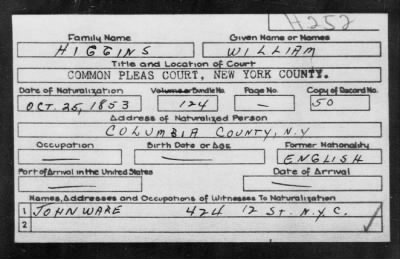 H252
Family Name Given Name or Names
HIGGINS WILLIAM
Title and Location of Court
COMMON PLEAS COURT, NEW YORK COUNTY.
Date of Naturalization Volume or Bundle No. Page No. Copy of Record No.
OCT. 25, 1853 124 — 50
Address of Naturalized Person
COLUMBIA COUNTY, N.Y
Occupation Birth Date or Age Former Nationality
— — ENGLISH
Port of Arrival in the United States Date of Arrival
— —
Names, Addresses and Occupations of Witnesses To Naturalization
1 JOHN WARE 424 12 ST. N.Y.C.
2